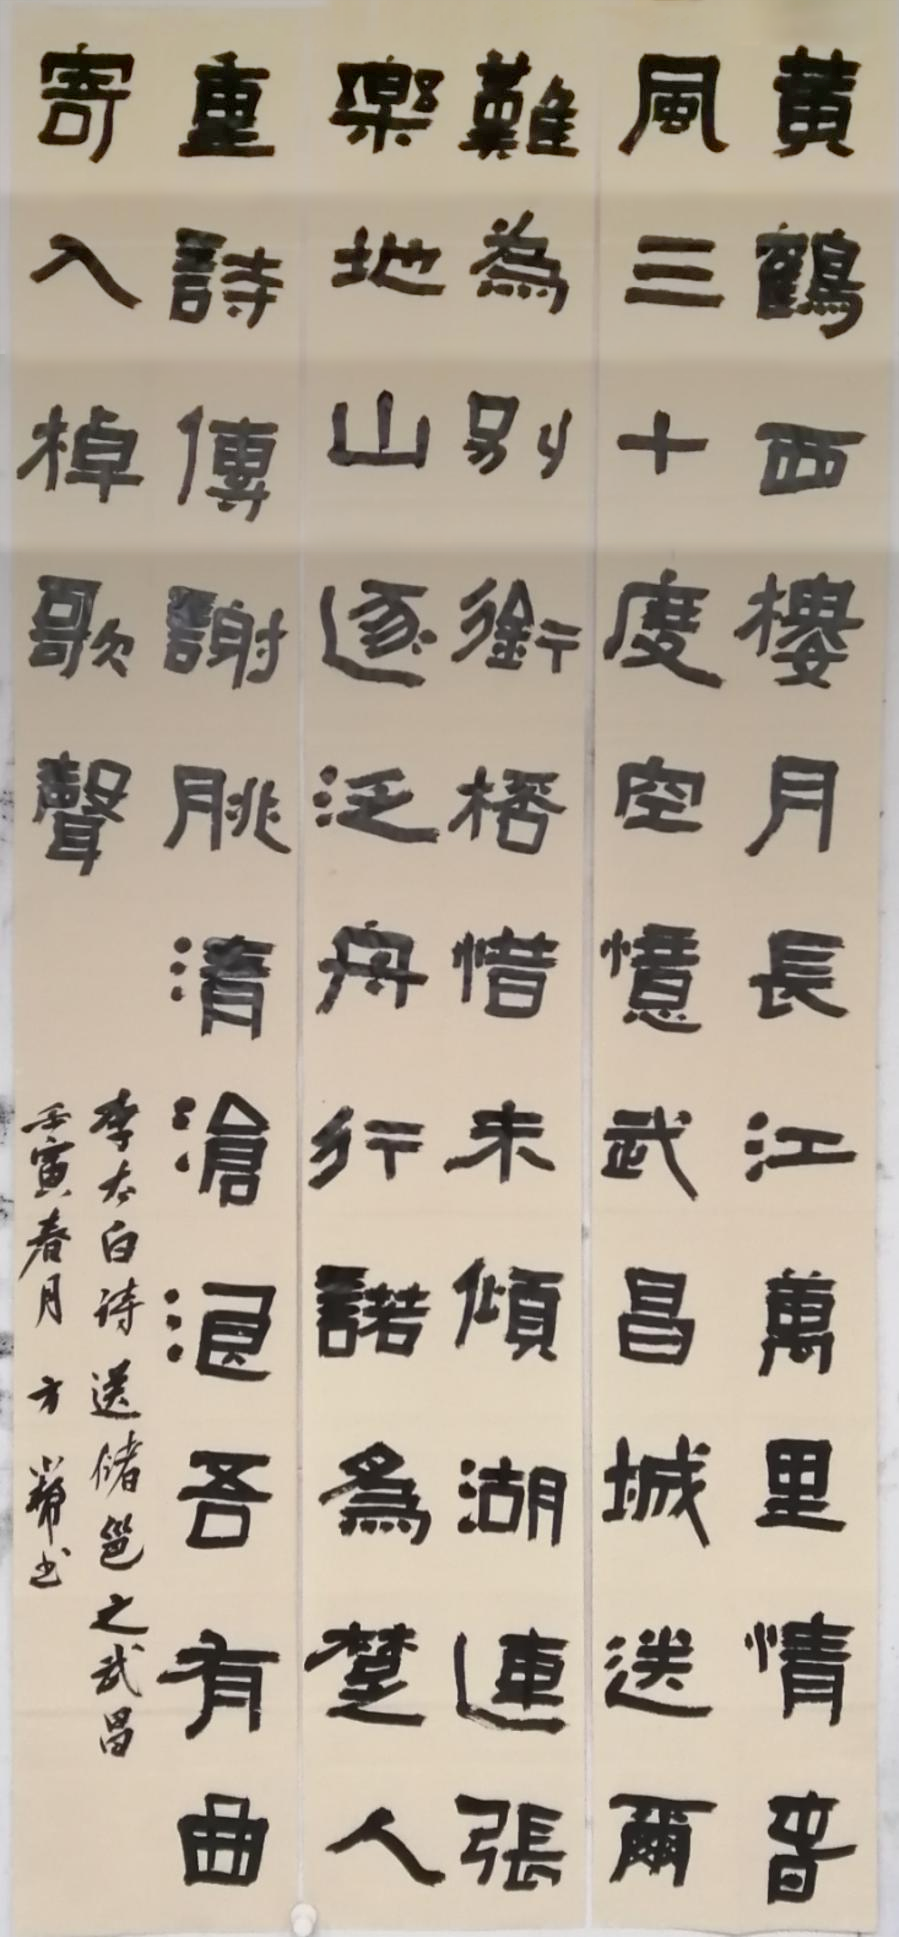 黃鶴西樓月長江萬里情春
風三十度空憶武昌城送爾
難為別銜桮惜未傾湖連張
樂地山逐泛舟行諾為楚人
重詩傳謝朓清滄浪吾有曲
寄入棹歌聲
李太白詩 送儲邕之武昌
壬寅春月 方 書